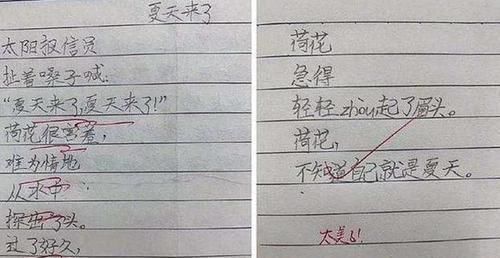 夏天来了
太阳报信员
扯着嗓子喊:
“夏天来了,夏天来了!”
荷花很害羞,
难为情地
从水中
探出了头。
过了好久,
荷花
急得
轻轻zhou起了眉头。
荷花,
不知道自己就是夏天。
太美了!